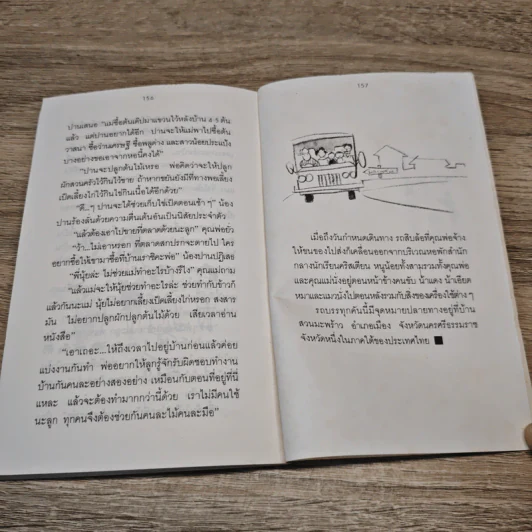 156
ปานเสนอ "แม่ซื้อต้นเตปมาแขวนไว้หลังบ้าน ๔ ๕ ต้น
แล้ว แต่ปานอยากได้อีก ปานจะให้แม่พาไปซื้อต้น
วาสนา ชื่อว่านเศรษฐี ชื่อพลูด่าง และสาวน้อยประแป้ง
บางอย่างขอเอาจากหอนี้คงได้"
"ปานจะปลูกต้นไม้เหรอ พ่อคิดว่าจะให้ปลูก
ผักสวนครัวไว้กินไว้ขาย ถ้าหากขยันยังมีที่ทางพอเลี้ยง
เป็ดเลี้ยงไก่ไว้กินไข่กินเนื้อได้อีกด้วย"
"ดี...ๆ ปานจะได้ช่วยเก็บไข่เป็ดตอนเช้า ๆ" น้อง
ปานร้องลั่นด้วยความตื่นเต้นอันเป็นนิสัยประจำตัว
"แล้วต้องเอาไปขายที่ตลาดด้วยนะลูก" คุณพ่อยัว
"ว้า...ไม่เอาหรอก ที่ตลาดสกปรกจะตายไป ใคร
อยากซื้อให้เขามาซื้อที่บ้านเราซิคะพ่อ" น้องปานปฏิเสธ
"พี่นุ้ยล่ะ ไม่ช่วยแม่ทำอะไรบ้างรึไง" คุณแม่ถาม
"แล้วแม่จะให้นุ้ยช่วยทำอะไรล่ะ ช่วยทำกับข้าวก็
แล้วกันนะแม่ นุ้ยไม่อยากเลี้ยงเป็ดเลี้ยงไก่หรอก สงสาร
มัน ไม่อยากปลูกผักปลูกต้นไม้ด้วย เสียเวลาอ่าน
หนังสือ"
"เอาเถอะ...ให้ถึงเวลาไปอยู่บ้านก่อนแล้วค่อย
แบ่งงานกันทำ พ่ออยากให้ลูกรู้จักรับผิดชอบทำงาน
บ้านกันคนละอย่างสองอย่าง เหมือนกับตอนที่อยู่ที่นี่
แหละ แล้วจะต้องทำมากกว่านี้ด้วย เราไม่มีคนใช้
นะลูก ทุกคนจึงต้องช่วยกันคนละไม้คนละมือ"
157
เมื่อถึงวันกำหนดเดินทาง รถสิบล้อที่คุณพ่อจ้าง
ให้ขนของไปส่งก็เคลื่อนออกจากบริเวณหอพักสำนัก
กลางนักเรียนคริสเตียน หนูน้อยทั้งสามรวมทั้งคุณพ่อ
และคุณแม่นั่งอยู่ตอนหน้าข้างคนขับ น้าแดง น้าเอียด
หมาและแมวนั่งไปตอนหลังรวมกับสิ่งของเครื่องใช้ต่าง ๆ
รถบรรทุกคันนี้มีจุดหมายปลายทางอยู่ที่บ้าน
สวนมะพร้าว อำเภอเมือง จังหวัดนครศรีธรรมราช
จังหวัดหนึ่งในภาคใต้ของประเทศไทย